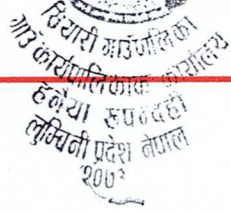 सियारी गाउँपालिका
गाउँ कार्यपालिकाको कार्यालय
हनैया रुपन्देही
लुम्बिनी प्रदेश नेपाल
२०७३